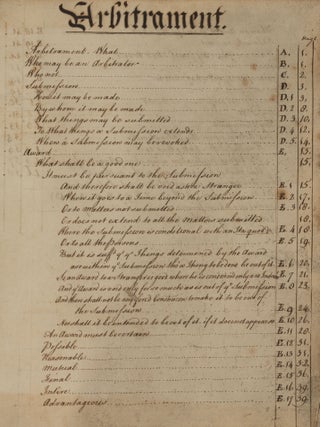 Arbitrament.
Page
Arbitrament. What A. 1.
Who may be an Arbitrator B. 1.
Who not C. 2.
Submission D. 3.
How it may be made D. 1 3.
By whom it may be made D. 2 8.
What things may be submitted D. 3 10.
To What things a Submission extends D. 4 12.
When a Submission may be revoked D. 5 14.
Award E. 15.
What shall be a good one 15.
It must be pursuant to the Submission
And therefore shall be void as to a Stranger E. 1 15
When it goes to a Time beyond the Submission E. 2 17.
Or to Matters not submitted E. 3 18
Or does not extend to all the Matters submitted 18.
Where the Submission is conditional with an Ita quod E. 4 18.
Or to all the Persons E. 5 19.
But it is suffᵗ if yᵉ Things determined by the Award
are within yᵉ Submission
E. 6 20.
E. 7 21.
And if Award is void only for so much as is out of yᵉ Submission E. 8 23.
And then shall not be any
the Submission E. 9 24.
Nor shall it be intended to be out of it, if it does not appear so E. 10 26.
An Award must be certain E. 11 28.
Possible E. 12 31.
Reasonable E. 13
Mutual E. 14
Final E. 15 36.
Intire E. 16 39.
Advantageous E. 17 39.